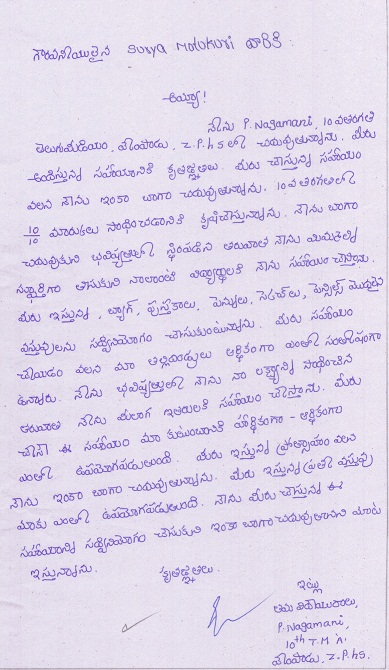 గౌరవనీయులైన Surya Molukuri వారికి
అయ్యా!
నేను P. Nagamani, 10 వతరగతి
తెలుగుమీడియం, వేంపాడు, Z.P.hsలో చదువుతున్నాను. మీరు
అందిస్తున్న సహాయానికి కృతజ్ఞతలు. మీరు చేస్తున్న సహాయం
వలన నేను ఇంకా బాగా చదువుతున్నాను. 10వ తరగతిలో
10/10 మార్కులు సాధించడానికి కృషిచేస్తున్నాను. నేను బాగా
చదువుకుని భవిష్యత్తులో స్థిరపడిన తరువాత నేను మిమ్మల్ని
స్ఫూర్తిగా తీసుకుని నాలాంటి విద్యార్థులకి నేను సహాయం చేస్తాను.
మీరు ఇస్తున్న, బ్యాగ్, పుస్తకాలు, పెన్నులు, పెన్సిల్స్ మొదలైన
వస్తువులను సద్వినియోగం చేసుకుంటున్నాను. మీరు సహాయం
చేయడం వలన మా తల్లిదండ్రులు ఆర్థికంగా ఎంతో సంతోషంగా
ఉన్నారు. నేను భవిష్యత్తులో నేను నా లక్ష్యాన్ని సాధించిన
తరువాత నేను మీలాగ ఇతరులకి సహాయం చేస్తాను. మీరు
చేసే ఈ సహాయం మా కుటుంబానికి హార్థికంగా - ఆర్థికంగా
ఎంతో ఉపయోగపడుతుంది. మీరు ఇస్తున్న ప్రోత్సాహం వలన
నేను ఇంకా బాగా చదువుతున్నాను. మీరు ఇస్తున్న ప్రతీ వస్తువు
మాకు ఎంతో ఉపయోగపడుతుంది. నేను మీరు చేస్తున్న ఈ
సహాయాన్ని సద్వినియోగం చేసుకుని ఇంకా బాగా చదువుతానని మాట
ఇస్తున్నాను.
కృతజ్ఞతలు.
ఇట్లు
తమ విధేయురాలు,
P. Nagamani,
10th T.M
వేంపాడు, Z.P.hs.